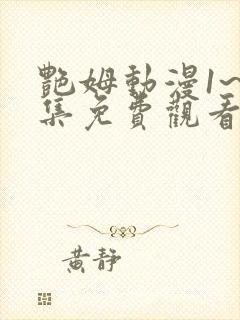 艷姆動漫1~
集免費觀看
黃靜